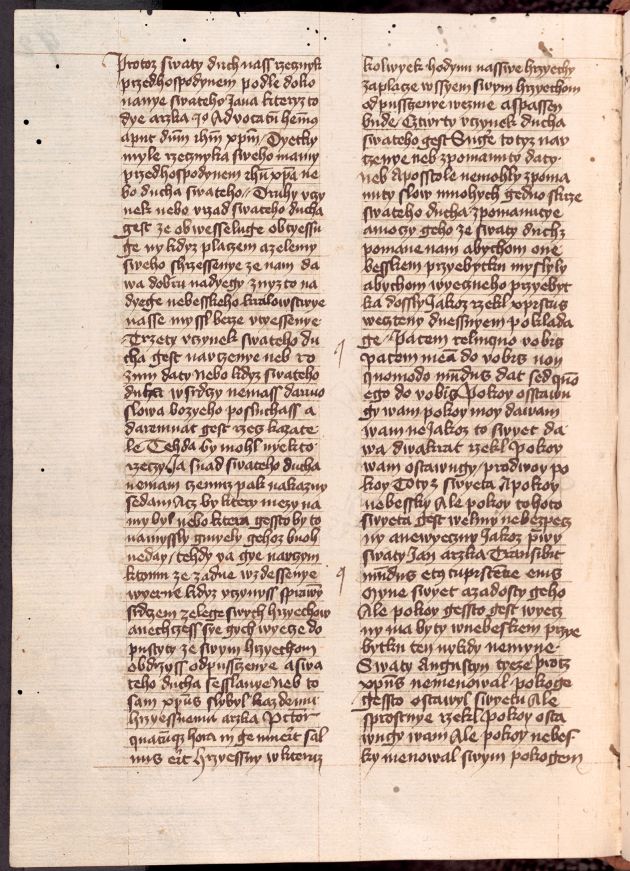 Protoz swaty duch nass rzecznyk
przedhospodynem podle doko
nanye swateho Jana kteryz to
dye arzka Advocatu hem9
apnt dum ihm xpm / Dyetky
myle rzecznyka sweho mamy
przedhospodynem ihu xpa ne
bo ducha swateho / Druhy vcy
nek nebo vrzad swateho ducha
gest ze obwesseluge obtyessu
ge ny kdyz placzem azelemy
sweho shrzessenye ze nam da
wa dobru nadyegy znyz to na
dyege nebesskeho kralowstwye
nasse myssl berze vtyessenye
Trzety vcynek swateho du
cha gest navczenye neb ro
zum daty nebo kdyz swateho
ducha wsrdczy nemass darmo
slowa bozyeho posluchass a
daremnat gest rzecz kazate
le Tehda by mohl nyekto
rzeczy Ja snad swateho ducha
nemam czemuz pak nakazny
sedam Acz by ktery mezy na
my byl nebo ktera gessto by to
namyssly gmyely gehoz buoh
neday / tehdy va gye navczym
ktomu ze zadne wzdessenye
wyerne kdyz vczynyss sprawny
srdczem zelege swych hrzyechow
anechczess sye gych wyecze do
pustyty ze swym hrzyechom
obdrzyss odpusstzenye aswa
teho ducha sesslanye Neb to
sam xpus slybyl kazdemu
hrzyessnemu arzka Pctor
quacuqz hora in ge muerit sal
uus erit hrzyessny wkteruz
kolwyek hodynu nasswe hrzyechy
zaplacze wssyem swym hrzyechom
odpusstzenye wezme aspassen
bude / Cztwrty vczynek ducha
swateho gest Suge to tyz nav
czenye neb zpomanuty daty
neb Aposstole nemohly zpoma
nuty slow mnohych gedno skrze
swateho ducha zpomanutye
amoczy geho ze swaty duch z
pomane nam abychom one
besskem przyebytku myslyly
abychom wyeczneho przyebyt
ka dossly Jakoz rzekl xpristus
wecztenye dnessnyem poklada
ge Pacem relinquo vobis
pacem mea do vobis non
quomodo mundus dat sed quo
ego do vobis Pokoy osstawu
gy wam pokoy moy dawam
wam ne Jakoz to swyet da
wa dwakrat rzekl Pokoy
wam ostawugy / prodwoy po
koy Totyz swyeta Apokoy
nebessky Ale pokoy tohoto
swyeta gest welmy nebezpecz
ny anewyeczny Jakoz prwy
swaty Jan arzka Transibit
mundus et cupiscencie eius
Myne swyet azadosty geho
Ale pokoy gessto gest wyecz
ny ma byty wnebeskem przye
bytku ten nykdy nemyne
Swaty Augustyn trzeze protz
xpus nemenowal pokoge
gessto ostawyl swyetu Ale
sprostnye rzekl Pokoy osta
wugy wam Ale pokoy nebes
ky menowal swym pokogem